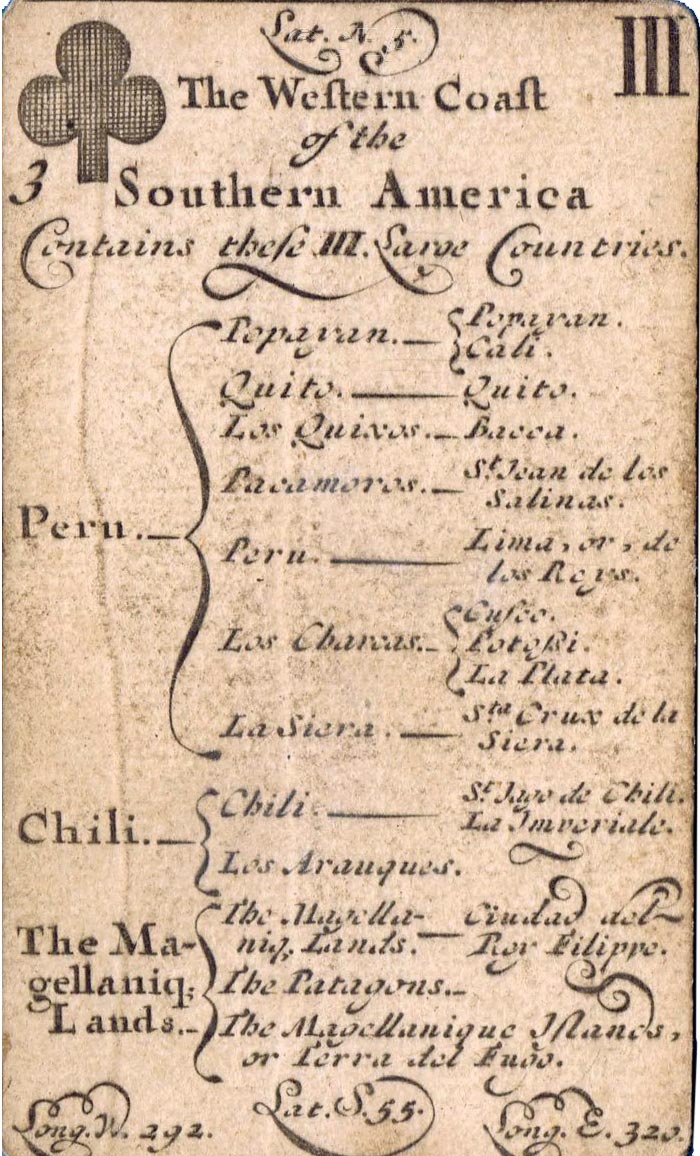 Lat. N. 5.
III
The Weſtern Coaſt
of the
3
Southern America
Contains theſe III. Large Countries.
Peru.
Popayan. Popayan.
Cali.
Quito. Quito.
Los Quixos. Baeca.
Pacamoros. St. Jean de los
Salinas.
Peru. Lima, or, de
los Reys.
Los Charcas. Cuſco.
Potoſsi.
La Plata.
La Siera. Sta. Crux de la
Siera.
Chili.
Chili. St. Jago de Chili.
La Imperiale.
Los Arauques.
The Ma-
gellaniq;
Lands.
The Magella- Ciudad del
niq; Lands. Rey Filippe.
The Patagons.
The Magellanique Iſlands,
or Terra del Fugo.
Long. W. 292. Lat. S. 55. Long. E. 320.